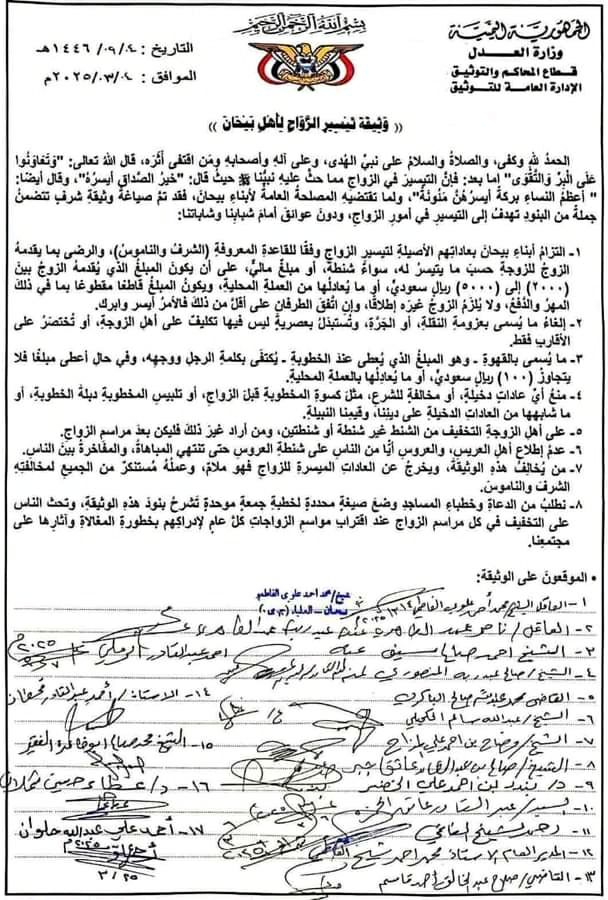 الجمهورية اليمنية
وزارة العدل
قطاع المحاكم والتوثيق
الإدارة العامة للتوثيق
بسم الله الرحمن الرحيم
التاريخ : ١٤٤٦/٠٩/٠٤هـ
الموافق : ٢٠٢٥/٠٣/٠٤م
(( وثيقة تيسير الزواج لأهل بيحان ))
الحمدُ للهِ وكفى، والصلاةُ والسلامُ على نبيِّ الهُدى، وعلى آلهِ وأصحابهِ ومَن اقتفى أثَرَه، قال اللهُ تعالى: "وَتَعَاوَنُوا
عَلَى الْبِرِّ وَالتَّقْوَى" إما بعد: فإنَّ التيسيرَ في الزواجِ مما حثَّ عليهِ نبيُّنا ﷺ حيثُ قال: "خيرُ الصَّداقِ أيسرُهُ"، وقال أيضًا:
"أعظمُ النساءِ بركةً أيسرُهنَّ مَئونةً"، ولما تقتضيهِ المصلحةُ العامةُ لأبناءِ بيحان، فقد تمَّ صياغةُ وثيقةِ شرفٍ تتضمنُ
جملةً من البنودِ تهدفُ إلى التيسيرِ في أمورِ الزواجِ، ودون عوائقَ أمامَ شبابِنا وشاباتِنا:
١- التزامُ أبناءِ بيحانَ بعاداتِهم الأصيلةِ لتيسيرِ الزواجِ وفقًا للقاعدةِ المعروفةِ (الشرفِ والناموسِ)، والرضى بما يقدمهُ
الزوجُ للزوجةِ حسبَ ما يتيسرُ له، سواءً شنطة، أو مبلغٌ ماليٌّ، على أن يكونَ المبلغُ الذي يُقدمهُ الزوجُ بينَ
(٢٠٠٠) إلى (٥٠٠٠) ريالٍ سعوديٍّ، أو ما يُعادلُها من العملةِ المحليةِ، ويكونُ المبلغُ قاطعًا مقطوعًا بما في ذلكَ
المهرُ والدَّفعُ، ولا يُلزمُ الزوجُ غيرَه إطلاقًا، وإن اتَّفقَ الطرفانِ على أقلَّ من ذلكَ فالأمرُ أيسرُ وابرك.
٢- إلغاءُ ما يُسمى بعزومةِ النقلةِ، أو الجَرَّةِ، وتُستبدَلُ بعصريةٍ ليس فيها تكليفٌ على أهلِ الزوجةِ، أو تُختصرُ على
الأقاربِ فقط.
٣- ما يُسمى بالقهوةِ - وهو المبلغُ الذي يُعطى عندَ الخطوبةِ - يُكتفَى بكلمةِ الرجلِ ووجههِ، وفي حالِ أعطى مبلغًا فلا
يتجاوزُ (١٠٠) ريالٍ سعوديٍّ، أو ما يُعادلُها بالعملةِ المحليةِ.
٤- منعُ أيِّ عاداتٍ دخيلةٍ، أو مخالفةٍ للشرعِ، مثلَ كسوةِ المخطوبةِ قبلَ الزواجِ، أو تلبيسِ المخطوبةِ دبلةَ الخطوبةِ، أو
ما شابهها من العاداتِ الدخيلةِ على دينِنا، وقيمِنا النبيلةِ.
٥- على أهلِ الزوجةِ التخفيفُ من الشنطِ غيرَ شنطةٍ أو شنطتينِ، ومن أرادَ غيرَ ذلكَ فليكن بعدَ مراسمِ الزواجِ.
٦- عدمُ إطلاعِ أهلِ العريسِ، والعروسِ أيًّا من الناسِ على شنطةِ العروسِ حتى تنتهي المباهاةُ، والمفاخرةُ بينَ الناسِ.
٧- من يُخالِفُ هذهِ الوثيقةَ، ويخرجُ عن العاداتِ الميسرةِ للزواجِ فهو ملامٌ، وعملُهُ مُستنكرٌ من الجميعِ لمخالفتهِ
الشرفَ والناموسَ.
٨- نطلبُ من الدعاةِ وخطباءِ المساجدِ وضعَ صيغةٍ محددةٍ لخطبةِ جمعةٍ موحدةٍ تَشرحُ بنودَ هذهِ الوثيقةِ، وتحثُ الناسَ
على التخفيفِ في كلِّ مراسمِ الزواجِ عندَ اقترابِ مواسمِ الزواجاتِ كلَّ عامٍ لإدراكِهم بخطورةِ المغالاةِ وآثارِها على
مجتمعِنا.
• الموقعونَ على الوثيقةِ:
شيخ/محمد أحمد علوي الفاطمي
بيحان - العليا
١- العاقل الشيخ محمد أحمد علوي الفاطمي
٢- العاقل/ ناصر
٣- الشيخ احمد صالح سيف
احمد عبدالقادر
٤- الشيخ/ صالح عبدربه المنصوري
٥- القاضي محمد صالح الباكري
١٤- الاستاذ/ أحمد عبدالقادر
٦- الشيخ/ عبدالله سالم الكحيلي
٧- الشيخ/ وضاح بن احمد علي
١٥- الشيخ محمد صالح
٨- الشيخ/ صالح بن
٩- د/ بن احمد علي الخضر
١٦- د/ عطاء حسين
١٠-
١١-
١٧- أحمد علي عبدالله حلوان
١٢- المدير العام الاستاذ محمد احمد شيخ الفاطمي
١٣- القاضي/ صلاح عبدالخالق أحمد قاسم